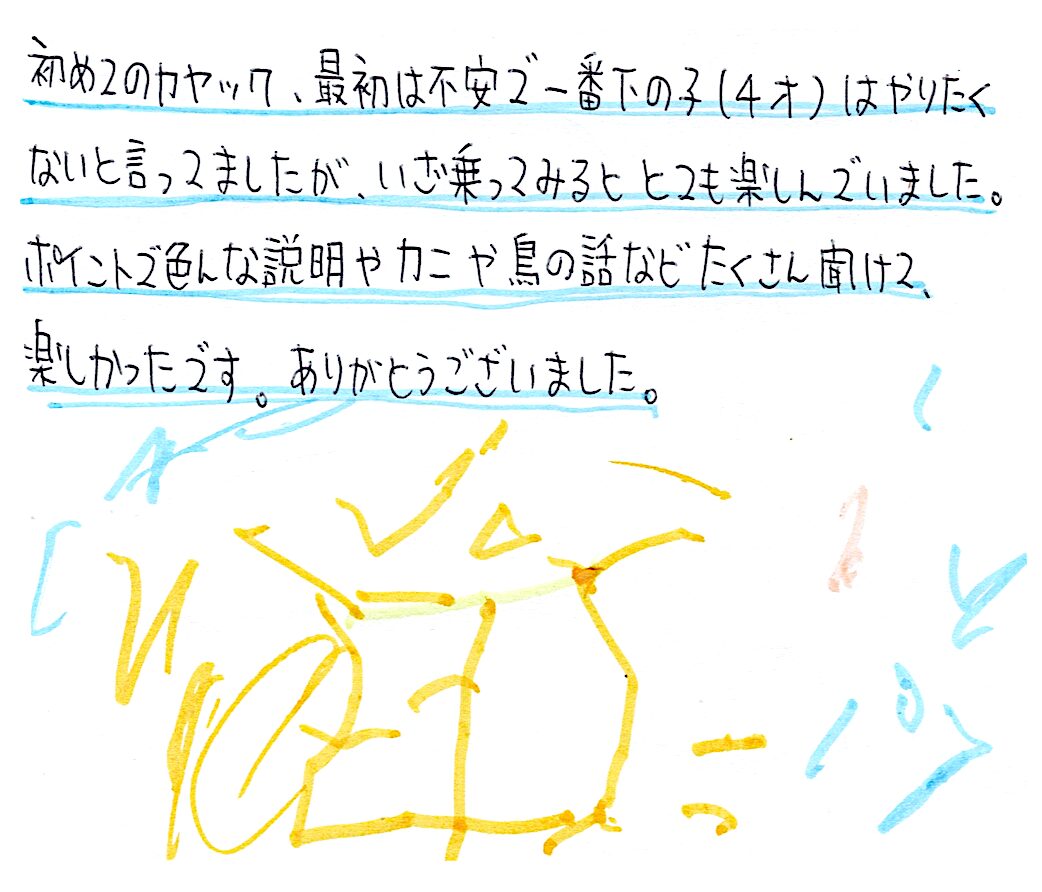 初めてのカヤック、最初は不安で一番下の子(4才)はやりたく
ないと言ってましたが、いざ乗ってみるととても楽しんでいました。
ポイントで色んな説明やカニや鳥の話などたくさん聞けて、
楽しかったです。ありがとうございました。